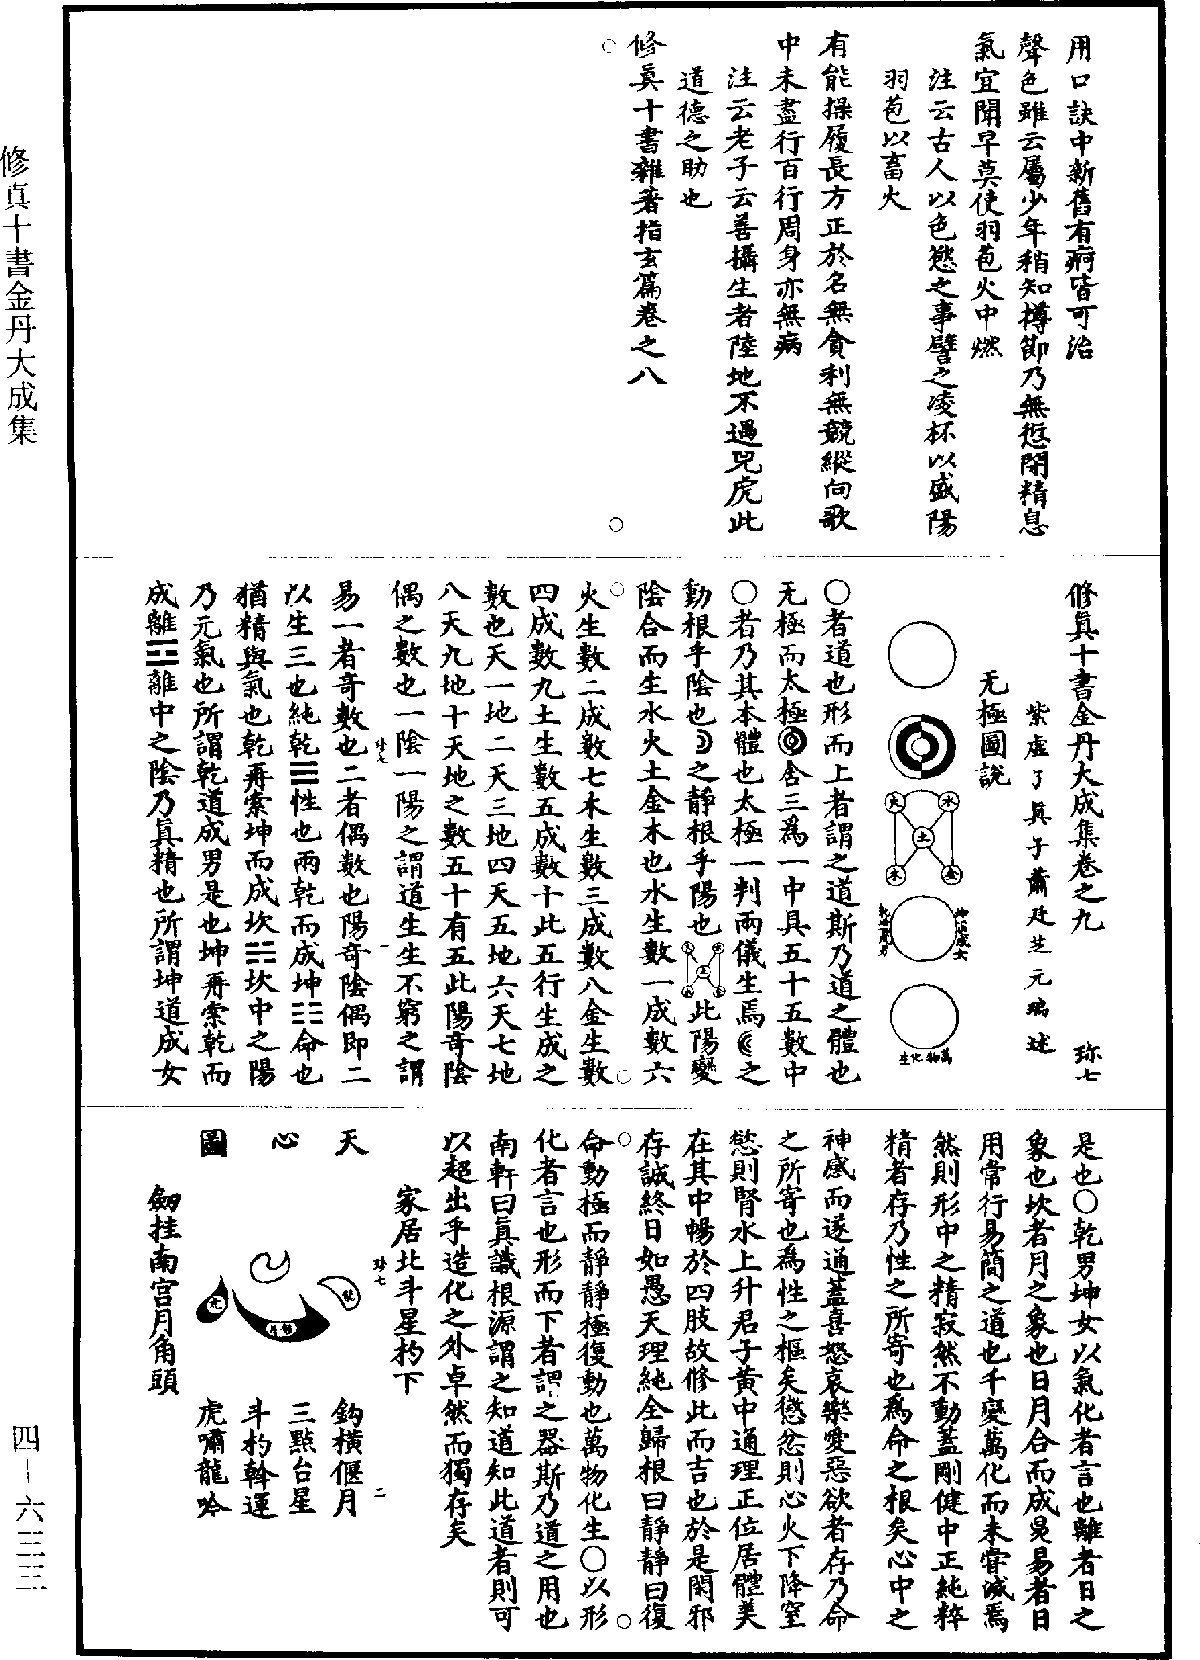 用口訣中新舊有痾皆可治
聲色雖云屬少年稍知樽節乃無愆閑精息
氣宜聞早莫使羽苞火中燃
注云古人以色慾之事譬之凌杯以盛陽
羽苞以畜火
有能操履長方正於名無貪利無競縱向歌
中未盡行百行周身亦無病
注云老子云善攝生者陸地不遇兕虎此
道德之助也
修真十書雜著指玄篇卷之八
修真十書金丹大成集卷之九
珎七
紫虛了真子蕭廷芝元瑞述
无極圖說
火
水
土
木
金
坤道成女
乾道成男
萬物化生
○者道也形而上者謂之道斯乃道之體也
无極而太極含三爲一中具五十五數中
○者乃其本體也太極一判兩儀生焉之
動根乎陰也之靜根乎陽也此陽變
陰合而生水火土金木也水生數一成數六
火生數二成數七木生數三成數八金生數
四成數九土生數五成數十此五行生成之
數也天一地二天三地四天五地六天七地
八天九地十天地之數五十有五此陽奇陰
偶之數也一陰一陽之謂道生生不窮之謂
珎七
一
易一者奇數也二者偶數也陽奇陰偶即二
以生三也純乾☰性也兩乾而成坤☷命也
猶精與氣也乾再索坤而成坎☵坎中之陽
乃元氣也所謂乾道成男是也坤再索乾而
成離☲離中之陰乃真精也所謂坤道成女
是也○乾男坤女以氣化者言也離者日之
象也坎者月之象也日月合而成易易者日
用常行易簡之道也千變萬化而未嘗滅焉
然則形中之精寂然不動蓋剛健中正純粹
精者存乃性之所寄也爲命之根矣心中之
神感而遂通蓋喜怒哀樂愛惡欲者存乃命
之所寄也爲性之樞矣懲忿則心火下降窒
慾則腎水上升君子黃中通理正位居體美
在其中暢於四肢故修此而吉也於是閑邪
存誠終日如愚天理純全歸根曰靜靜曰復
命動極而靜靜極復動也萬物化生○以形
化者言也形而下者謂之器斯乃道之用也
南軒曰真識根源謂之知道知此道者則可
以超出乎造化之外卓然而獨存矣
家居北斗星杓下
珎七
二
天心圖
鈎橫偃月
三點台星
斗杓斡運
虎嘯龍吟
劒挂南宮月角頭
修真十書金丹大成集
四—六三三